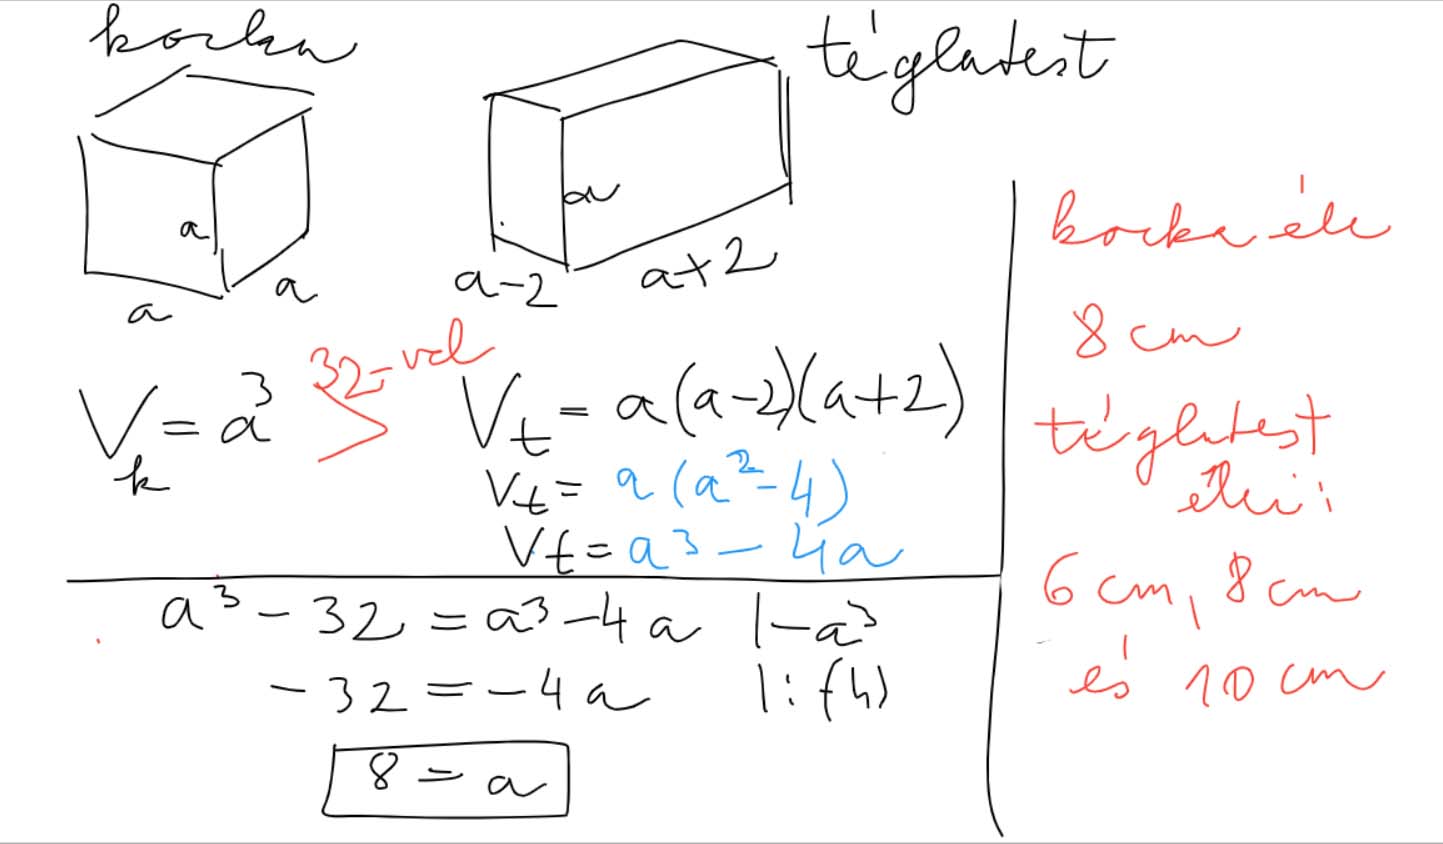 kocka
téglatest
a
a
a
a
a-2
a+2
32-vel
V_k = a³ > V_t = a(a-2)(a+2)
V_t = a(a²-4)
V_t = a³ - 4a
a³ - 32 = a³ - 4a |-a³
-32 = -4a |:(-4)
8 = a
kocka éle
8 cm
téglatest
élei:
6 cm, 8 cm
és 10 cm